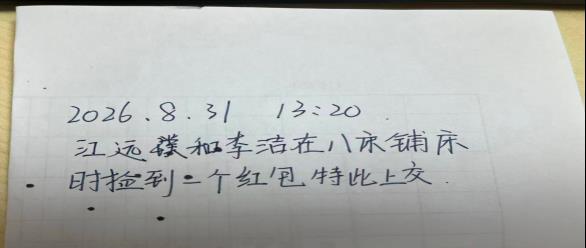 2026.8.31 13:20.
江远璞和李洁在八床铺床
时捡到二个红包.特此上交.